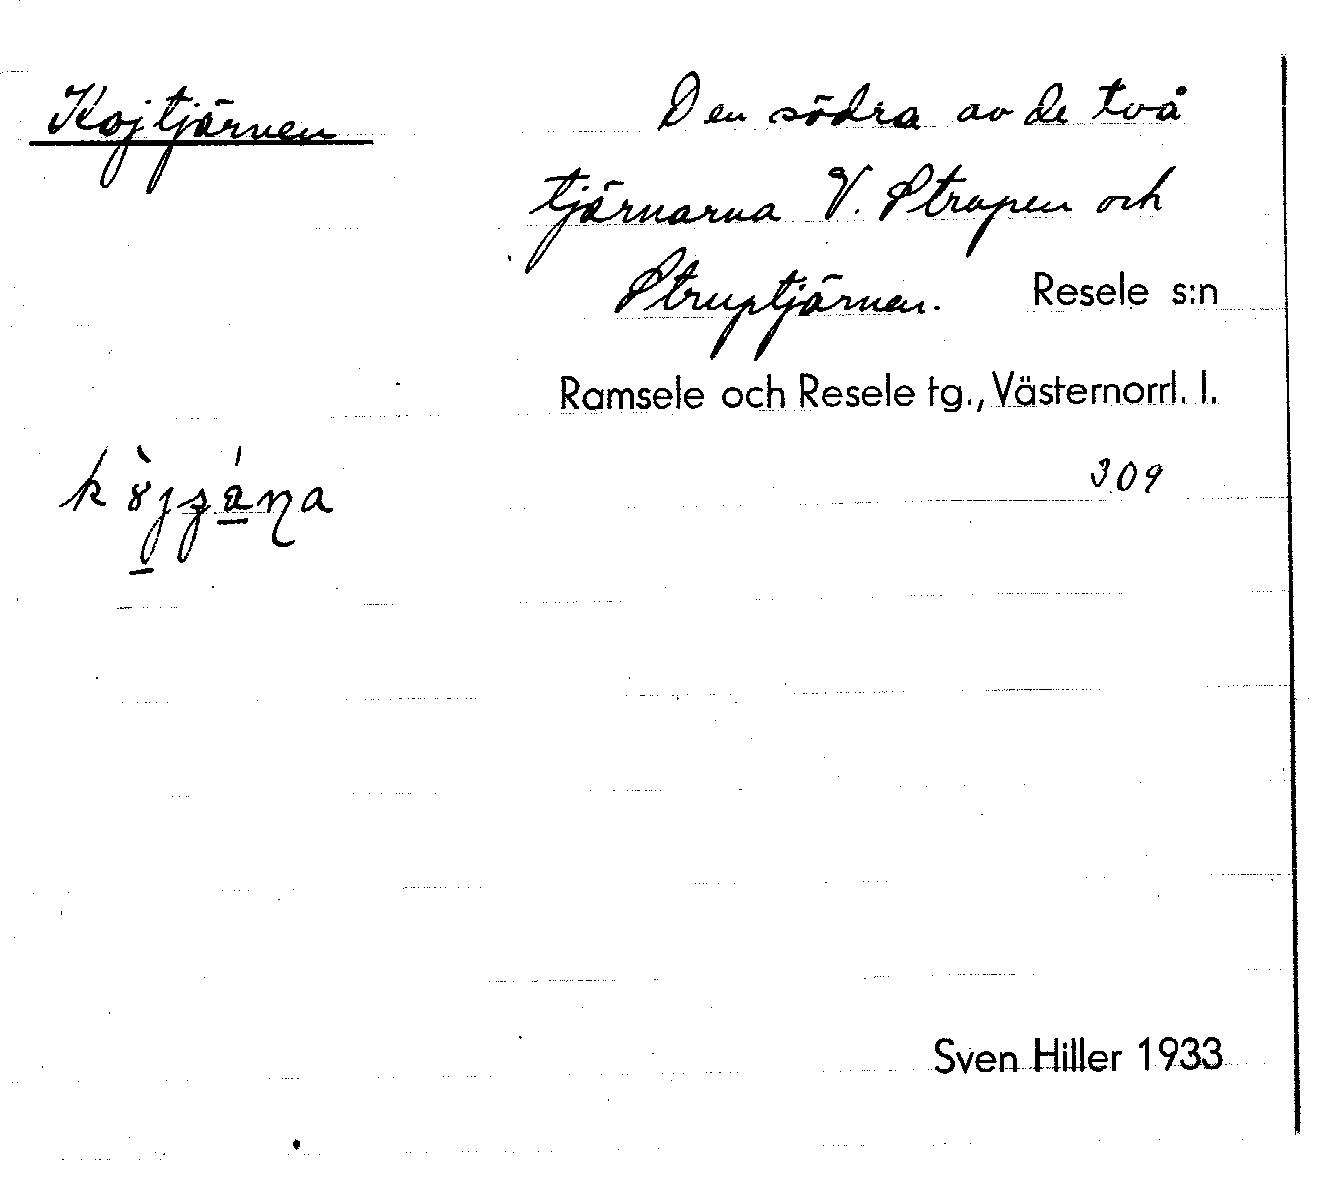 Kojtjärnen
Den södra av de två
tjärnarna V. Strupen och
Struptjärnen. Resele s:n
Ramsele och Resele tg., Västernorrl. l.
309
Sven Hiller 1933